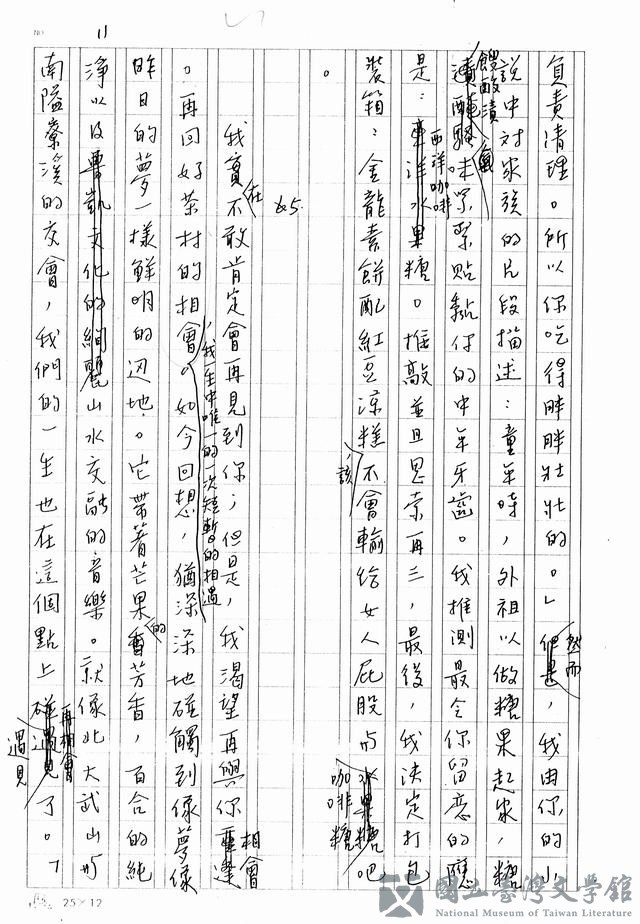 NO. 11
負責清理。所以你吃得胖胖壯壯的。」然而,我由你的小
說中对家族的片段描述:童年時,外祖以做糖果起家,糖
餿酸漬氣味緊緊貼黏你的中年牙齒。我推測最令你留意的應
是:西洋咖啡糖。推敲並且思索再三,最後,我決定打包
裝箱:金龍素餅配紅豆涼糕,該不會輸給女人屁股与咖啡糖吧
。
45.
我實在不敢肯定會再見到你;但是,我渴望再與你相會
。再回好茶村的相會,我一生中唯一的一次短暫的相遇。如今回想,猶深深地碰觸到像夢像
昨日的夢一樣鮮明的辺地。它帶著芒果的香芳香,百合的純
淨以及魯凱文化的絢麗山水交融的音樂。就像北大武山与
南隘寮溪的交會,我們的一生也在這個點上再相會遇見了。
25×12
國立臺灣文學館
National Museum of Taiwan Literature